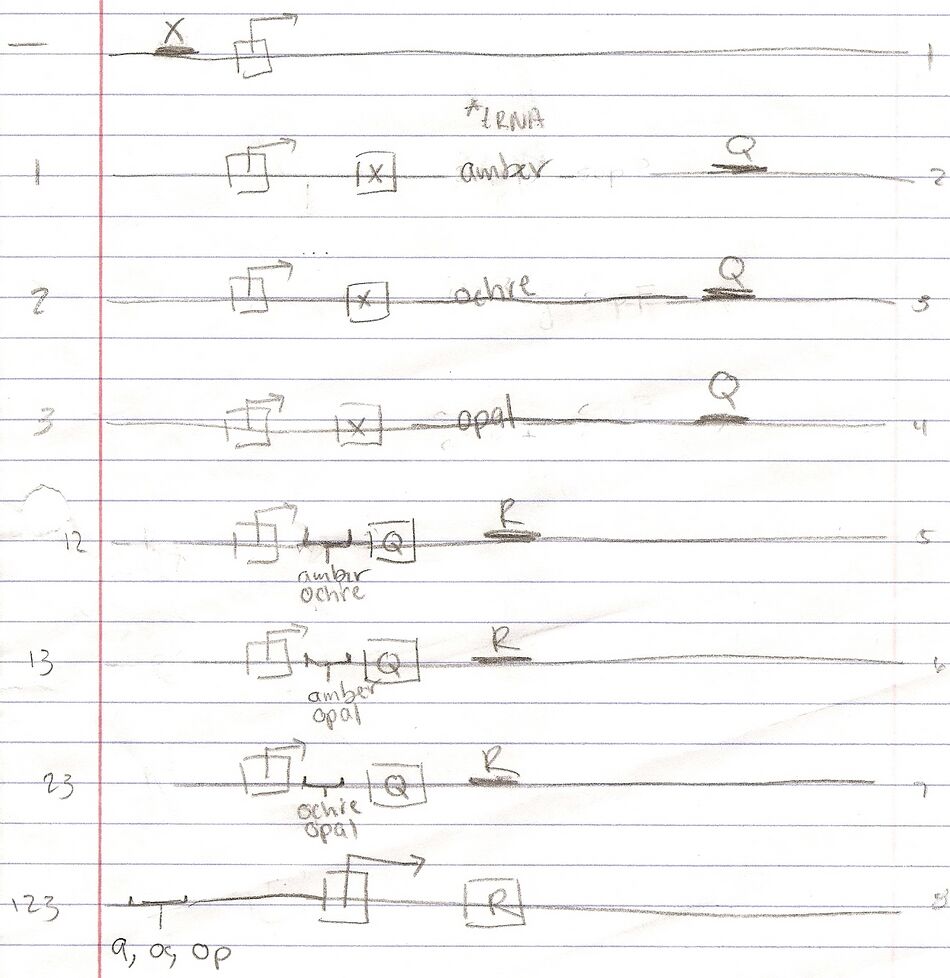 — X 1
*tRNA
1 X amber Q 2
...
2 X ochre Q 3
3 X opal Q 4
12 Q R 5
amber
ochre
13 Q R 6
amber
opal
23 Q R 7
ochre
opal
123 R 8
a, oc, op